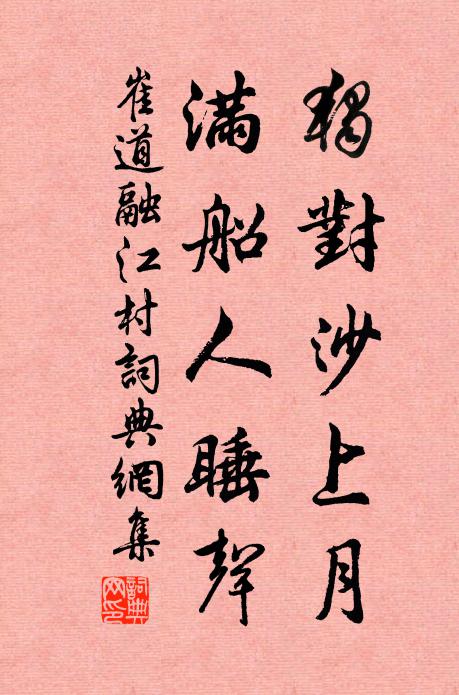 獨對沙上月
滿船人睡聲
崔道融江村詞典網集
詞典網印